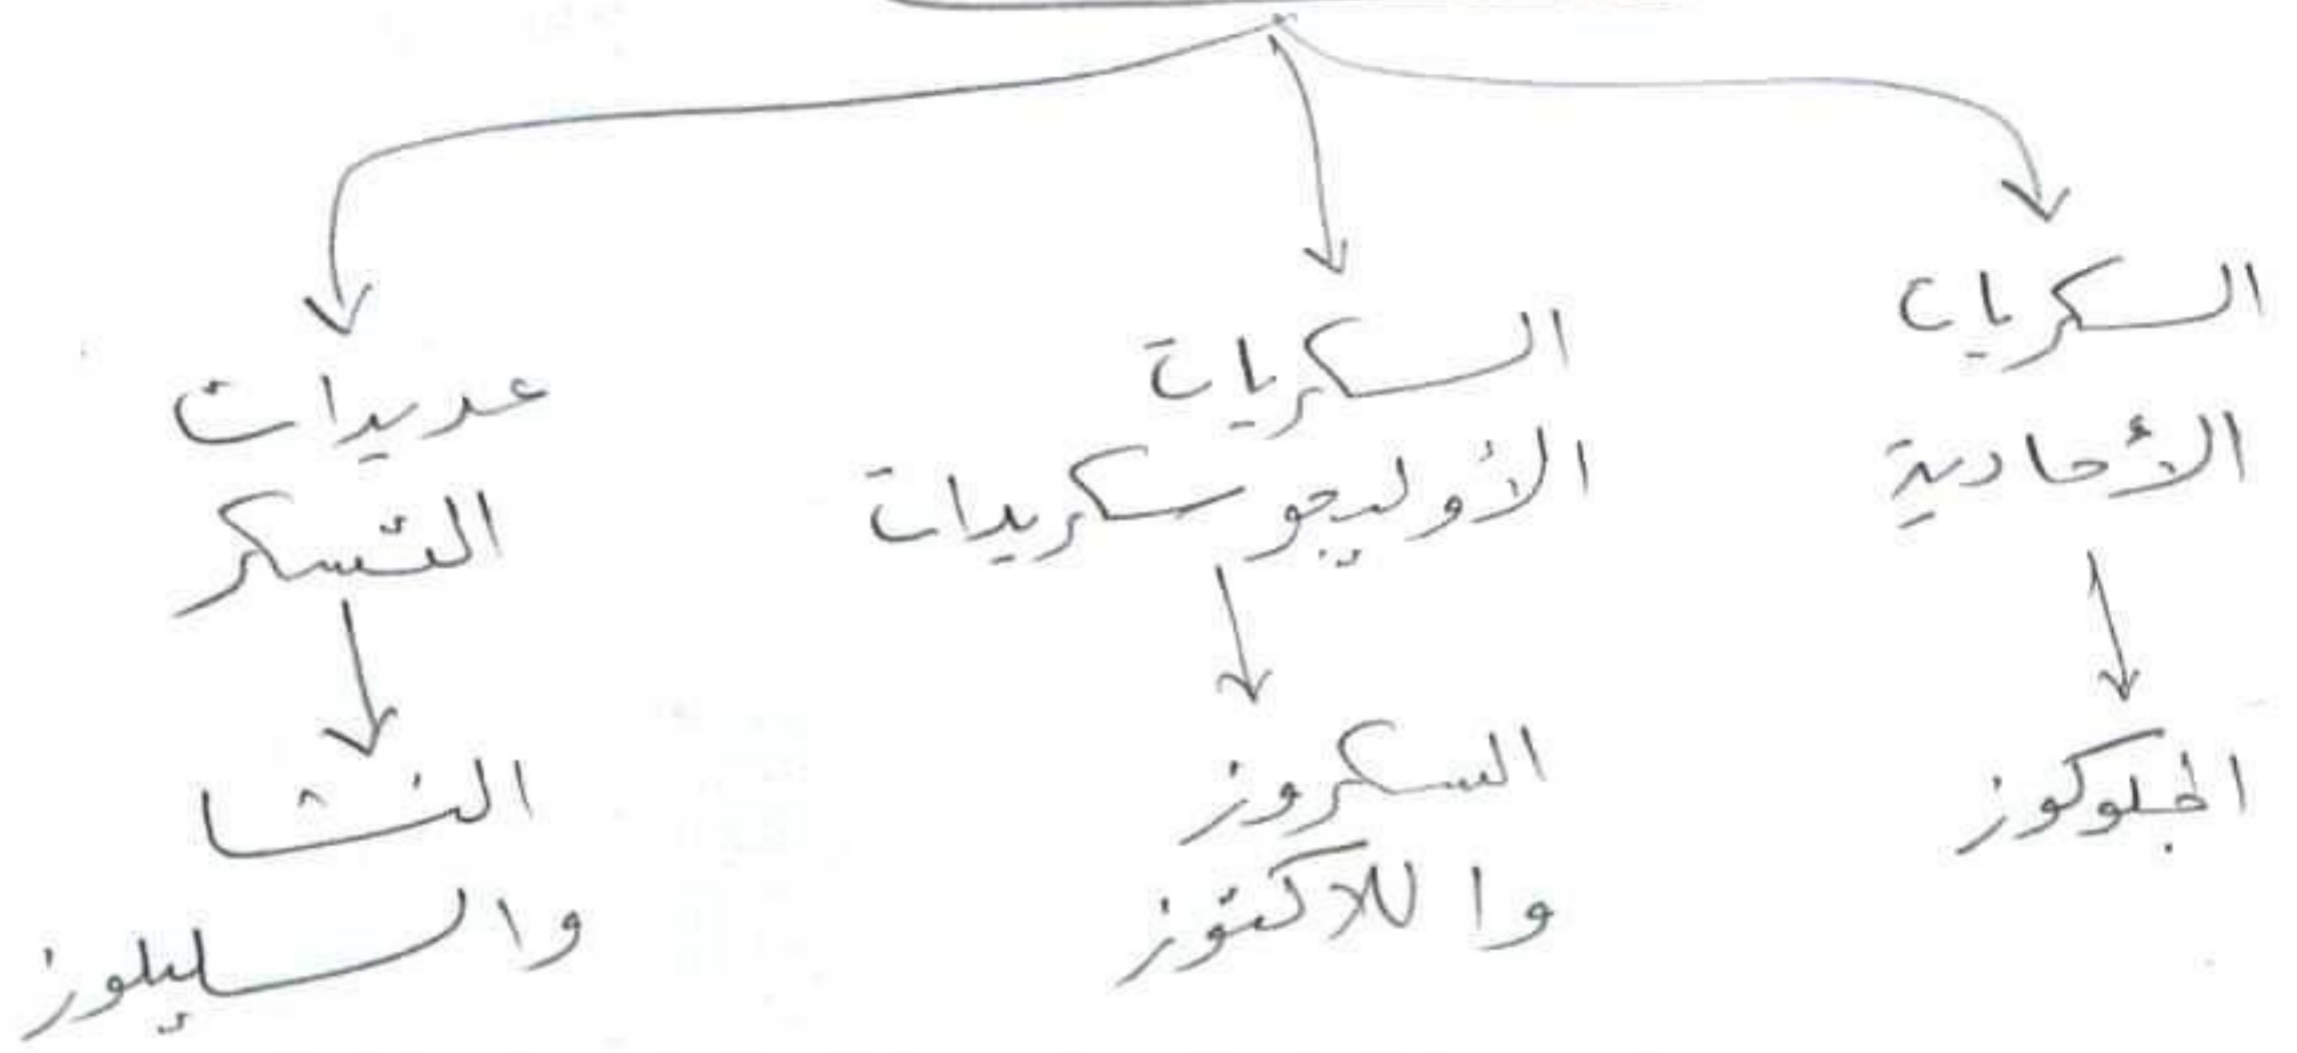 السكريات
الأحادية
الجلوكوز
السكريات
الأوليجوسكريدات
السكروز
واللاكتوز
عديدات
التسكر
النشا
والسليلوز